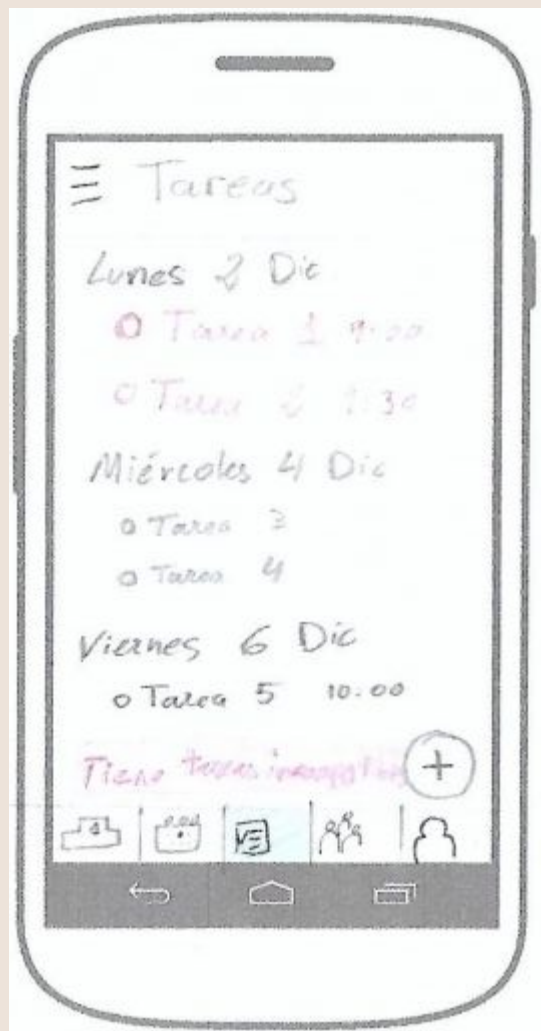 Tareas
Lunes 2 Dic
Tarea 1 9:00
Tarea 2 9:30
Miércoles 4 Dic
Tarea 3
Tarea 4
Viernes 6 Dic
Tarea 5 10:00
Tiene tareas
+
1